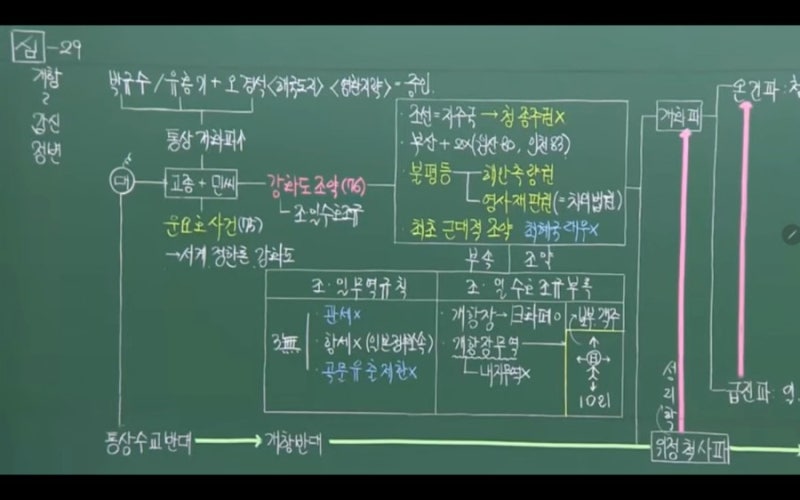 심-29
개항
갑신
정변
박규수/유흥기+오경석<해국도지><영환지략>=중인
통상개화파↑
대
고종+민씨
강화도조약(76)
조일수호조규
운요호사건(75)
→서계 정한론 강화도
·조선=자주국→청 종주권×
·부산+2개(원산80, 인천83)
·불평등
해안측량권
영사재판권(=치외법권)
·최초 근대적 조약 최혜국대우×
부속 조약
조·일무역규칙
3無
·관세×
·항세×(일본정부소속)
·곡물유출제한×
조·일수호조규부록
·개항장→日화폐○
·개항장무역
내지무역×
보부 객주
日
10리
개화파
온건파:청
급진파:일
성리학
위정척사파
통상수교반대
개항반대